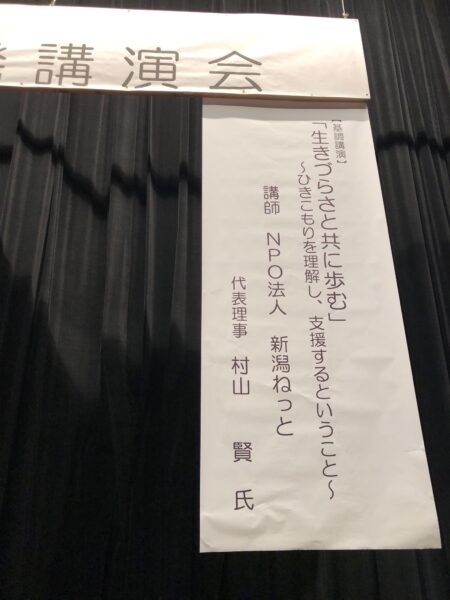 講演会
【基調講演】
「生きづらさと共に歩む」
～ひきこもりを理解し、支援するということ～
講師　NPO法人　新潟ねっと
代表理事　村山　賢　氏